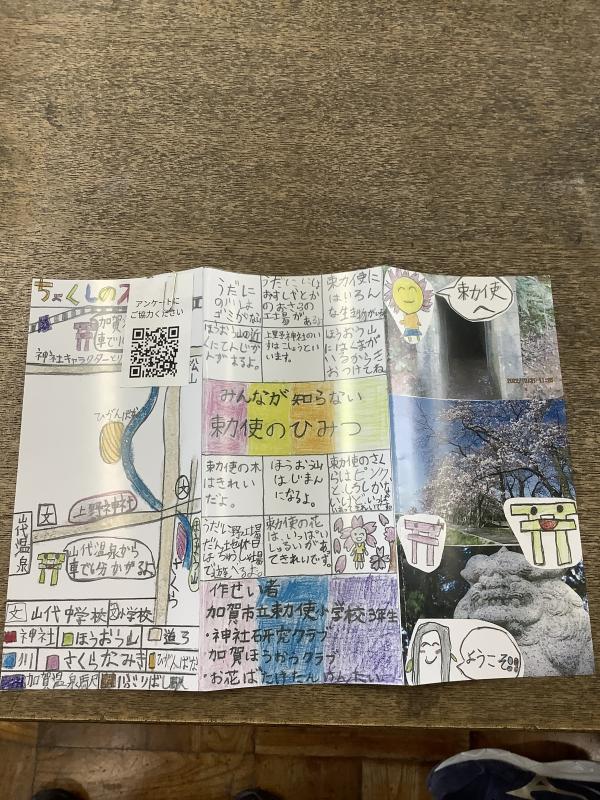 ちょくしの
アンケートに
ご協力ください
加賀
車で1
神社キャラクター
松山
ひがんばな
文
文
上野神社
山代温泉
山代温泉から
車で5分かかるよ
さくら
文 山代中学校 文 小学校
神社 ほうおう山 道ろ
川 さくらなみ木 ひがんばな
加賀温泉駅 いぶりばし駅
うだに
の川はよ
ゴミがな
おすしざとか
のおさらの
工場がある
勅使に
はいろん
な生き物が
ほうおう山の近
くにてんじか
んがあるよ。
上野神社のい
すはこしょうとい
います。
ほうおう山
にはくまが
いるから
おつけてね
みんなが知らない
勅使のひみつ
勅使の木
はきれい
だよ。
ほうおう山
はじまん
になるよ。
勅使のさく
らはピンク
勅使の花
は、いっぱい
しゅるいがあっ
てきれいです。
作せい者
加賀市立勅使小学校3年生
・神社研究クラブ
・加賀ほうおうクラブ
・お花ばたけたんけんたい
勅使
へ
ようこそ!!